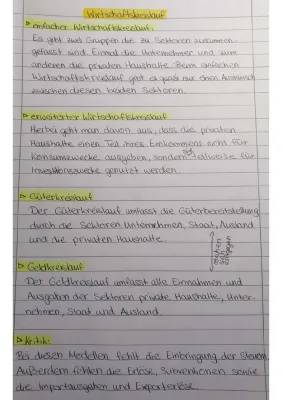 Wirtschaftskreislauf
▷ einfacher Wirtschaftskreislauf:
Es gibt zwei Gruppen die zu Sektoren zusammen-
gefasst sind. Einmal die Unternehmer und zum
anderen die privaten Haushalte. Beim einfachen
Wirtschaftskreislauf gibt es quasi nur einen Austausch
zwischen diesen beiden Sektoren.
▷ erweiterter Wirtschaftskreislauf:
Hierbei geht man davon aus, dass die privaten
Haushalte einen Teil ihres Einkommens nicht für
Konsumzwecke ausgeben, sondern teilweise für
Investitionszwecke genutzt werden.
▷ Güterkreislauf
Der Güterkreislauf umfasst die Güterbereitstellung
durch die Sektoren Unternehmen, Staat, Ausland
und die privaten Haushalte.
stehen sich entgegen
▷ Geldkreislauf
Der Geldkreislauf umfasst alle Einnahmen und
Ausgaben der Sektoren private Haushalte, Unter-
nehmen, Staat und Ausland.
▷ Kritik:
Bei diesen Modellen fehlt die Einbringung der Steuern.
Außerdem fehlen die Erlöse, Subventionen sowie
die Importausgaben und Exporterlöse.